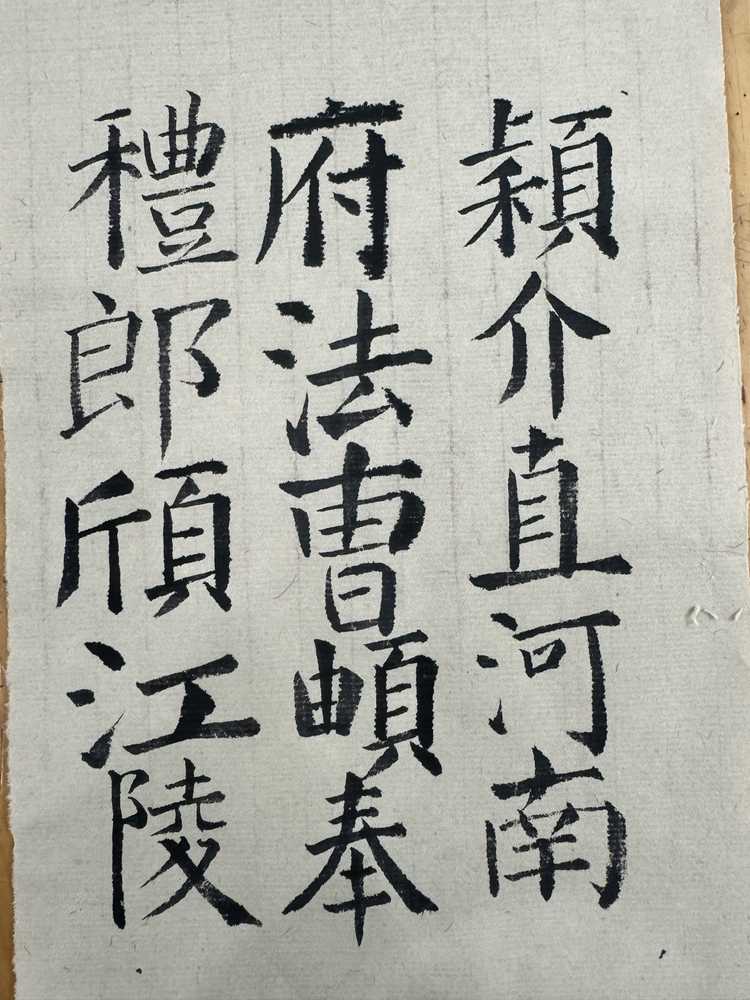 穎介直河南
府法曹頔奉
禮郎頎江陵